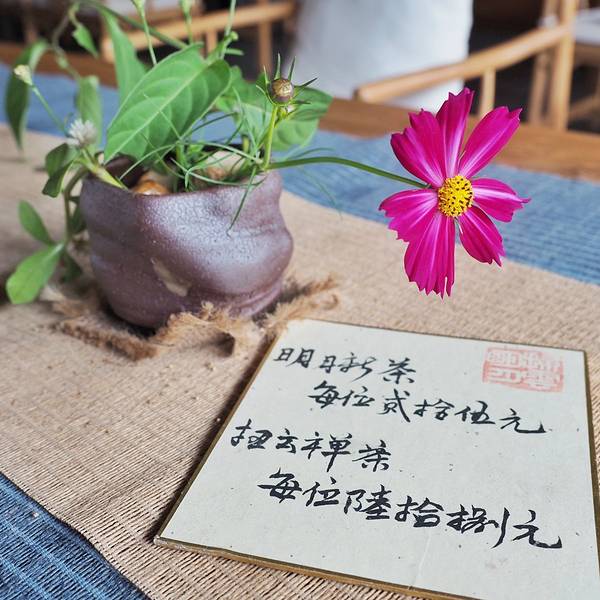 明月新茶
每位贰拾伍元
扭云禅茶
每位陸拾捌元